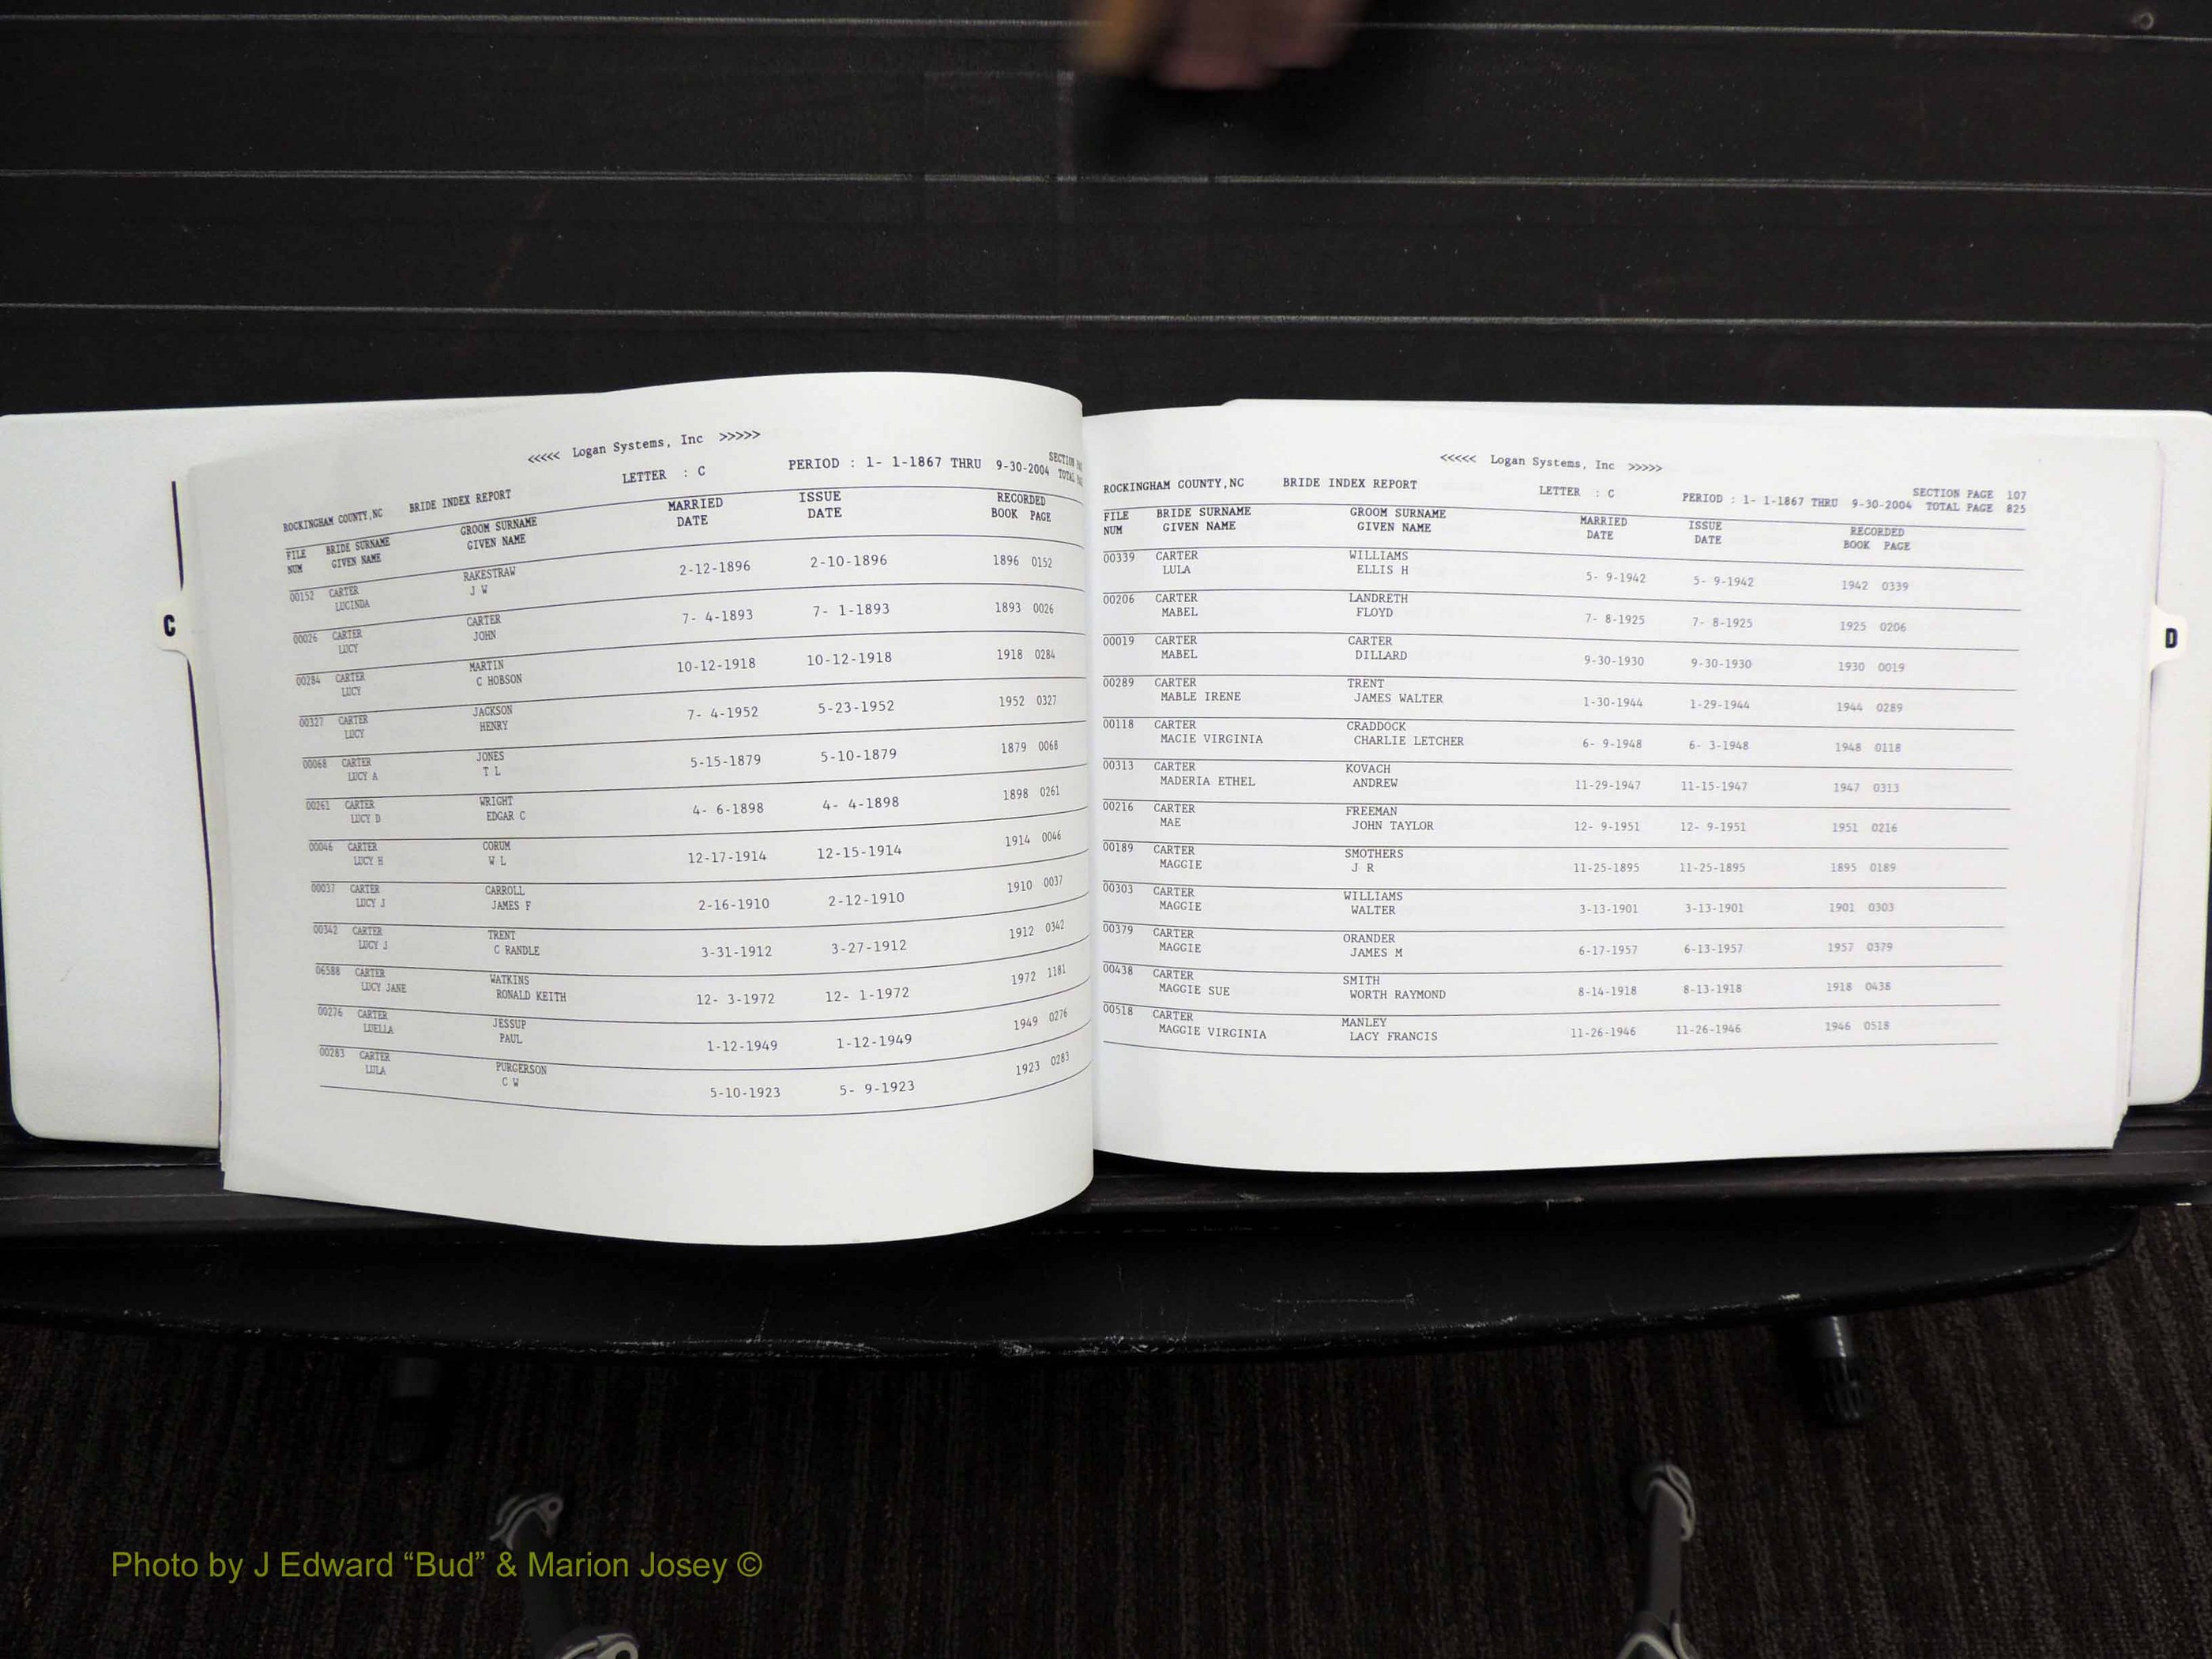 <<<<< Logan Systems, Inc >>>>>
ROCKINGHAM COUNTY,NC BRIDE INDEX REPORT LETTER : C PERIOD : 1- 1-1867 THRU 9-30-2004 SECTION
TOTAL
FILE BRIDE SURNAME GROOM SURNAME MARRIED ISSUE RECORDED
NUM GIVEN NAME GIVEN NAME DATE DATE BOOK PAGE
00152 CARTER RAKESTRAW 2-12-1896 2-10-1896 1896 0152
LUCINDA J W
00026 CARTER CARTER 7- 4-1893 7- 1-1893 1893 0026
LUCY JOHN
00284 CARTER MARTIN 10-12-1918 10-12-1918 1918 0284
LUCY C HOBSON
00327 CARTER JACKSON 7- 4-1952 5-23-1952 1952 0327
LUCY HENRY
00068 CARTER JONES 5-15-1879 5-10-1879 1879 0068
LUCY A T L
00261 CARTER WRIGHT 4- 6-1898 4- 4-1898 1898 0261
LUCY D EDGAR C
00046 CARTER CORUM 12-17-1914 12-15-1914 1914 0046
LUCY H W L
00037 CARTER CARROLL 2-16-1910 2-12-1910 1910 0037
LUCY J JAMES F
00342 CARTER TRENT 3-31-1912 3-27-1912 1912 0342
LUCY J C RANDLE
06588 CARTER WATKINS 12- 3-1972 12- 1-1972 1972 1181
LUCY JANE RONALD KEITH
00276 CARTER JESSUP 1-12-1949 1-12-1949 1949 0276
LUELLA PAUL
00283 CARTER PURGERSON 5-10-1923 5- 9-1923 1923 0283
LULA C W
C
<<<<< Logan Systems, Inc >>>>>
ROCKINGHAM COUNTY,NC BRIDE INDEX REPORT LETTER : C PERIOD : 1- 1-1867 THRU 9-30-2004 SECTION PAGE 107
TOTAL PAGE 825
FILE BRIDE SURNAME GROOM SURNAME MARRIED ISSUE RECORDED
NUM GIVEN NAME GIVEN NAME DATE DATE BOOK PAGE
00339 CARTER WILLIAMS 5- 9-1942 5- 9-1942 1942 0339
LULA ELLIS H
00206 CARTER LANDRETH 7- 8-1925 7- 8-1925 1925 0206
MABEL FLOYD
00019 CARTER CARTER 9-30-1930 9-30-1930 1930 0019
MABEL DILLARD
00289 CARTER TRENT 1-30-1944 1-29-1944 1944 0289
MABLE IRENE JAMES WALTER
00118 CARTER CRADDOCK 6- 9-1948 6- 3-1948 1948 0118
MACIE VIRGINIA CHARLIE LETCHER
00313 CARTER KOVACH 11-29-1947 11-15-1947 1947 0313
MADERIA ETHEL ANDREW
00216 CARTER FREEMAN 12- 9-1951 12- 9-1951 1951 0216
MAE JOHN TAYLOR
00189 CARTER SMOTHERS 11-25-1895 11-25-1895 1895 0189
MAGGIE J R
00303 CARTER WILLIAMS 3-13-1901 3-13-1901 1901 0303
MAGGIE WALTER
00379 CARTER ORANDER 6-17-1957 6-13-1957 1957 0379
MAGGIE JAMES M
00438 CARTER SMITH 8-14-1918 8-13-1918 1918 0438
MAGGIE SUE WORTH RAYMOND
00518 CARTER MANLEY 11-26-1946 11-26-1946 1946 0518
MAGGIE VIRGINIA LACY FRANCIS
D
Photo by J Edward “Bud” & Marion Josey ©